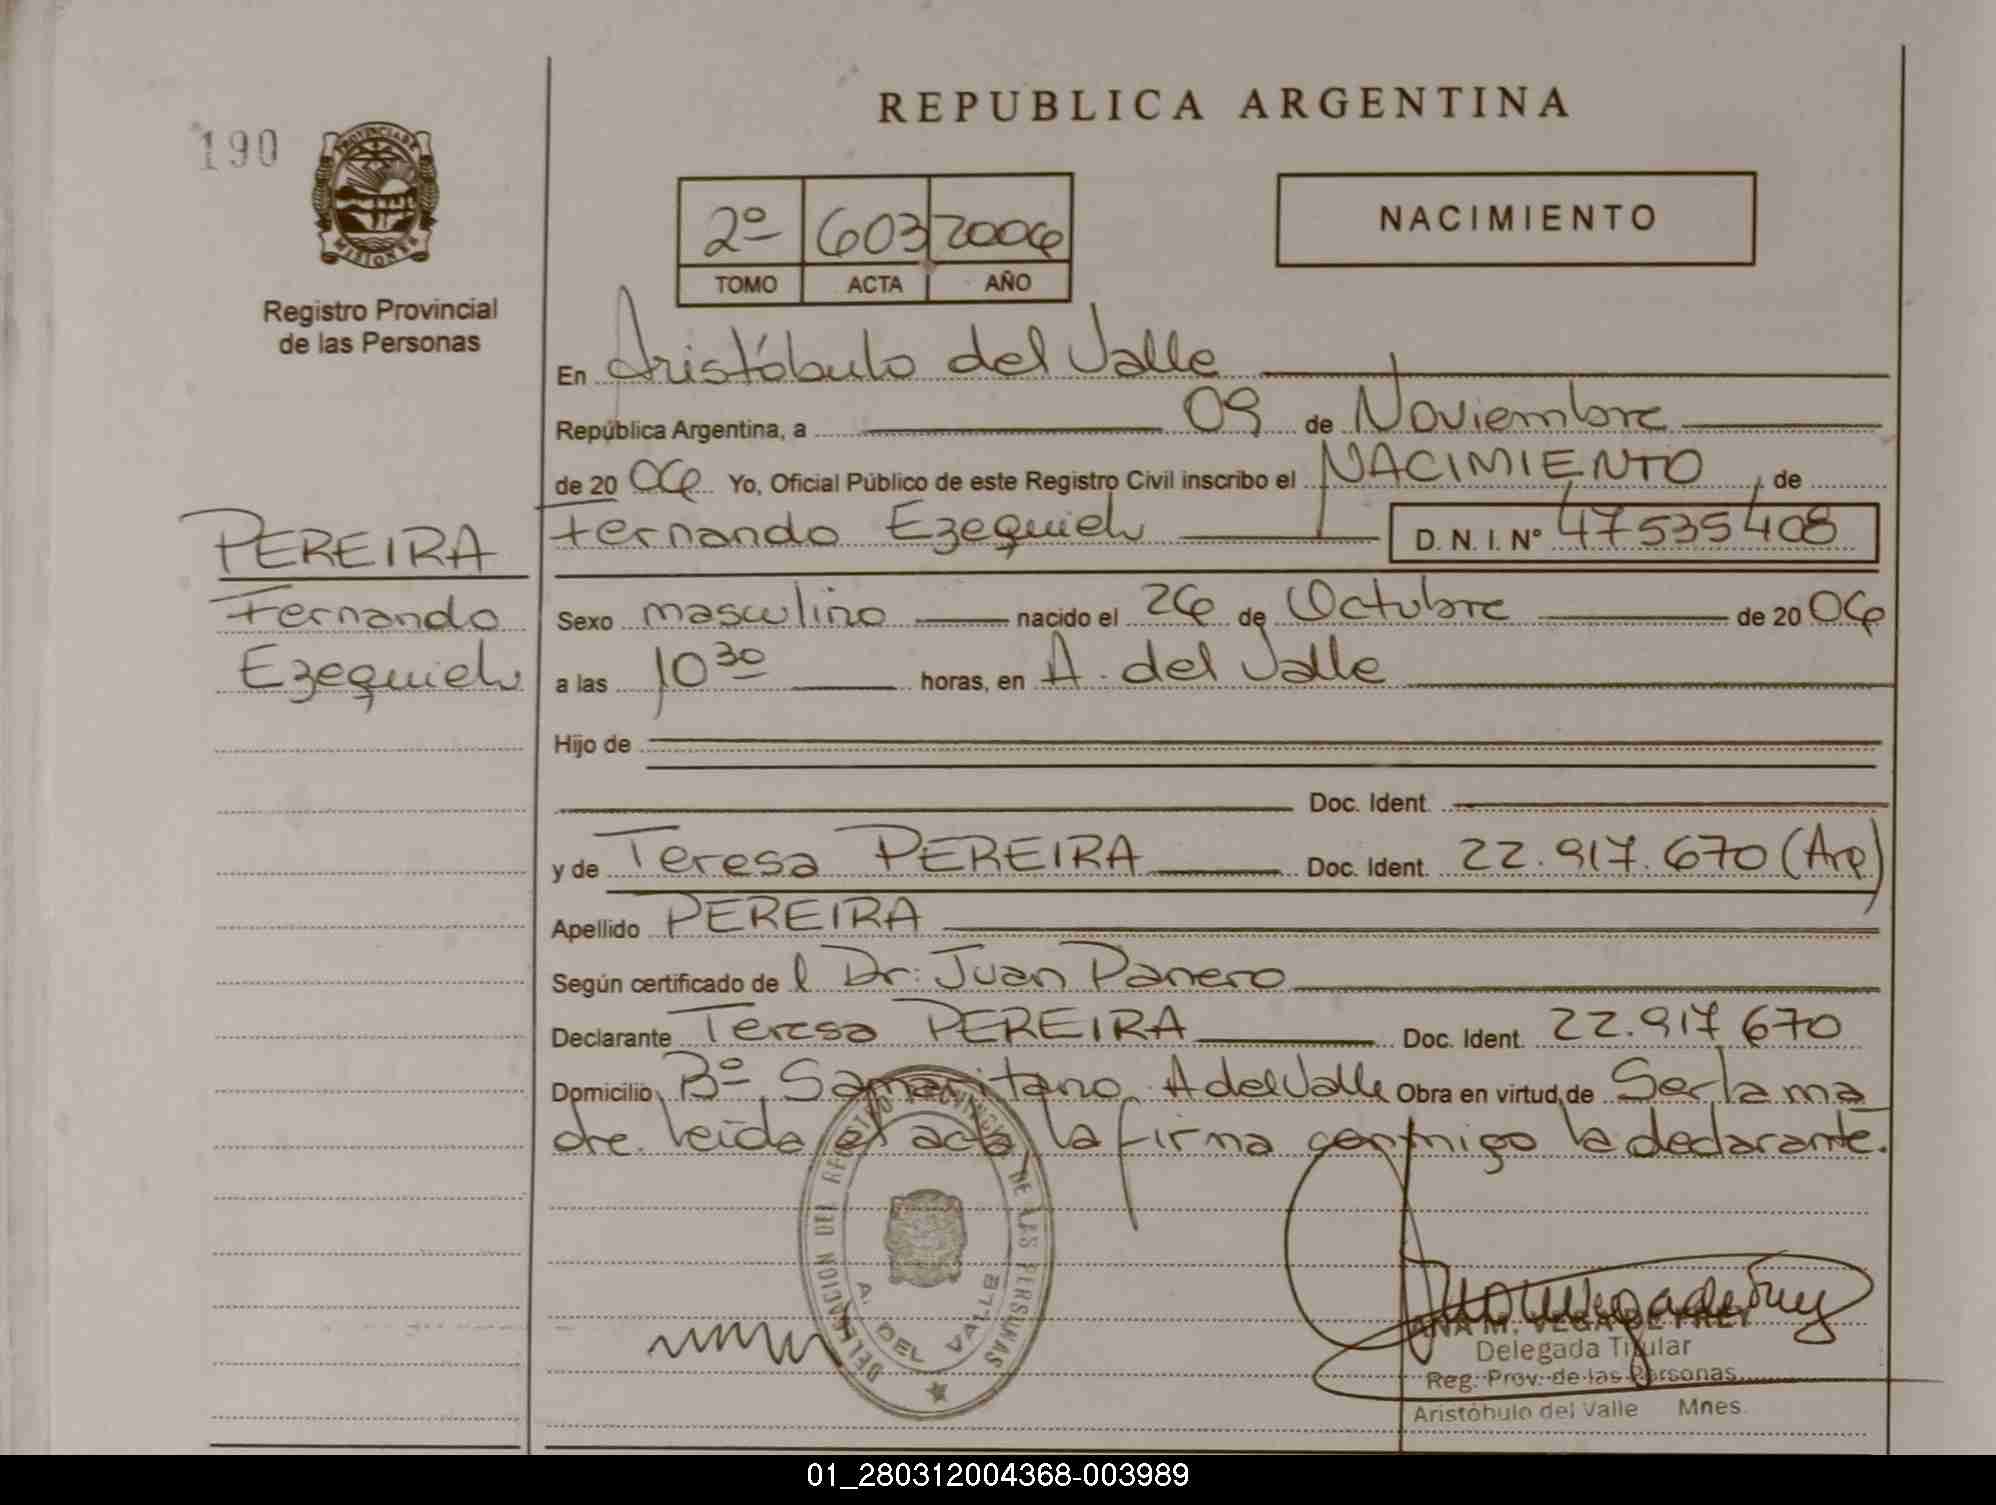 REPUBLICA ARGENTINA
190
PROVINCIA DE
MISIONES
Registro Provincial
de las Personas
2º 603 2006
TOMO ACTA AÑO
NACIMIENTO
En Aristóbulo del Valle
República Argentina, a 09 de Noviembre
de 20 06 Yo, Oficial Público de este Registro Civil inscribo el NACIMIENTO de
Fernando Ezequiel D. N. I. Nº 47535408
PEREIRA
Fernando
Ezequiel
Sexo masculino nacido el 26 de Octubre de 20 06
a las 10 30 horas, en A. del Valle
Hijo de
Doc. Ident.
y de Teresa PEREIRA Doc. Ident. 22.917.670 (Arg)
Apellido PEREIRA
Según certificado de l Dr: Juan Panero
Declarante Teresa PEREIRA Doc. Ident. 22.917 670
Domicilio Bº Samaritano A del Valle Obra en virtud de Ser la ma
dre. leída el acta la firma conmigo la declarante.
DELEGACION DEL REGISTRO PROVINCIAL DE LAS PERSONAS
A. DEL VALLE
ANA M. VEGA DE FREY
Delegada Titular
Reg. Prov. de las Personas
Aristóbulo del Valle Mnes.
01_280312004368-003989